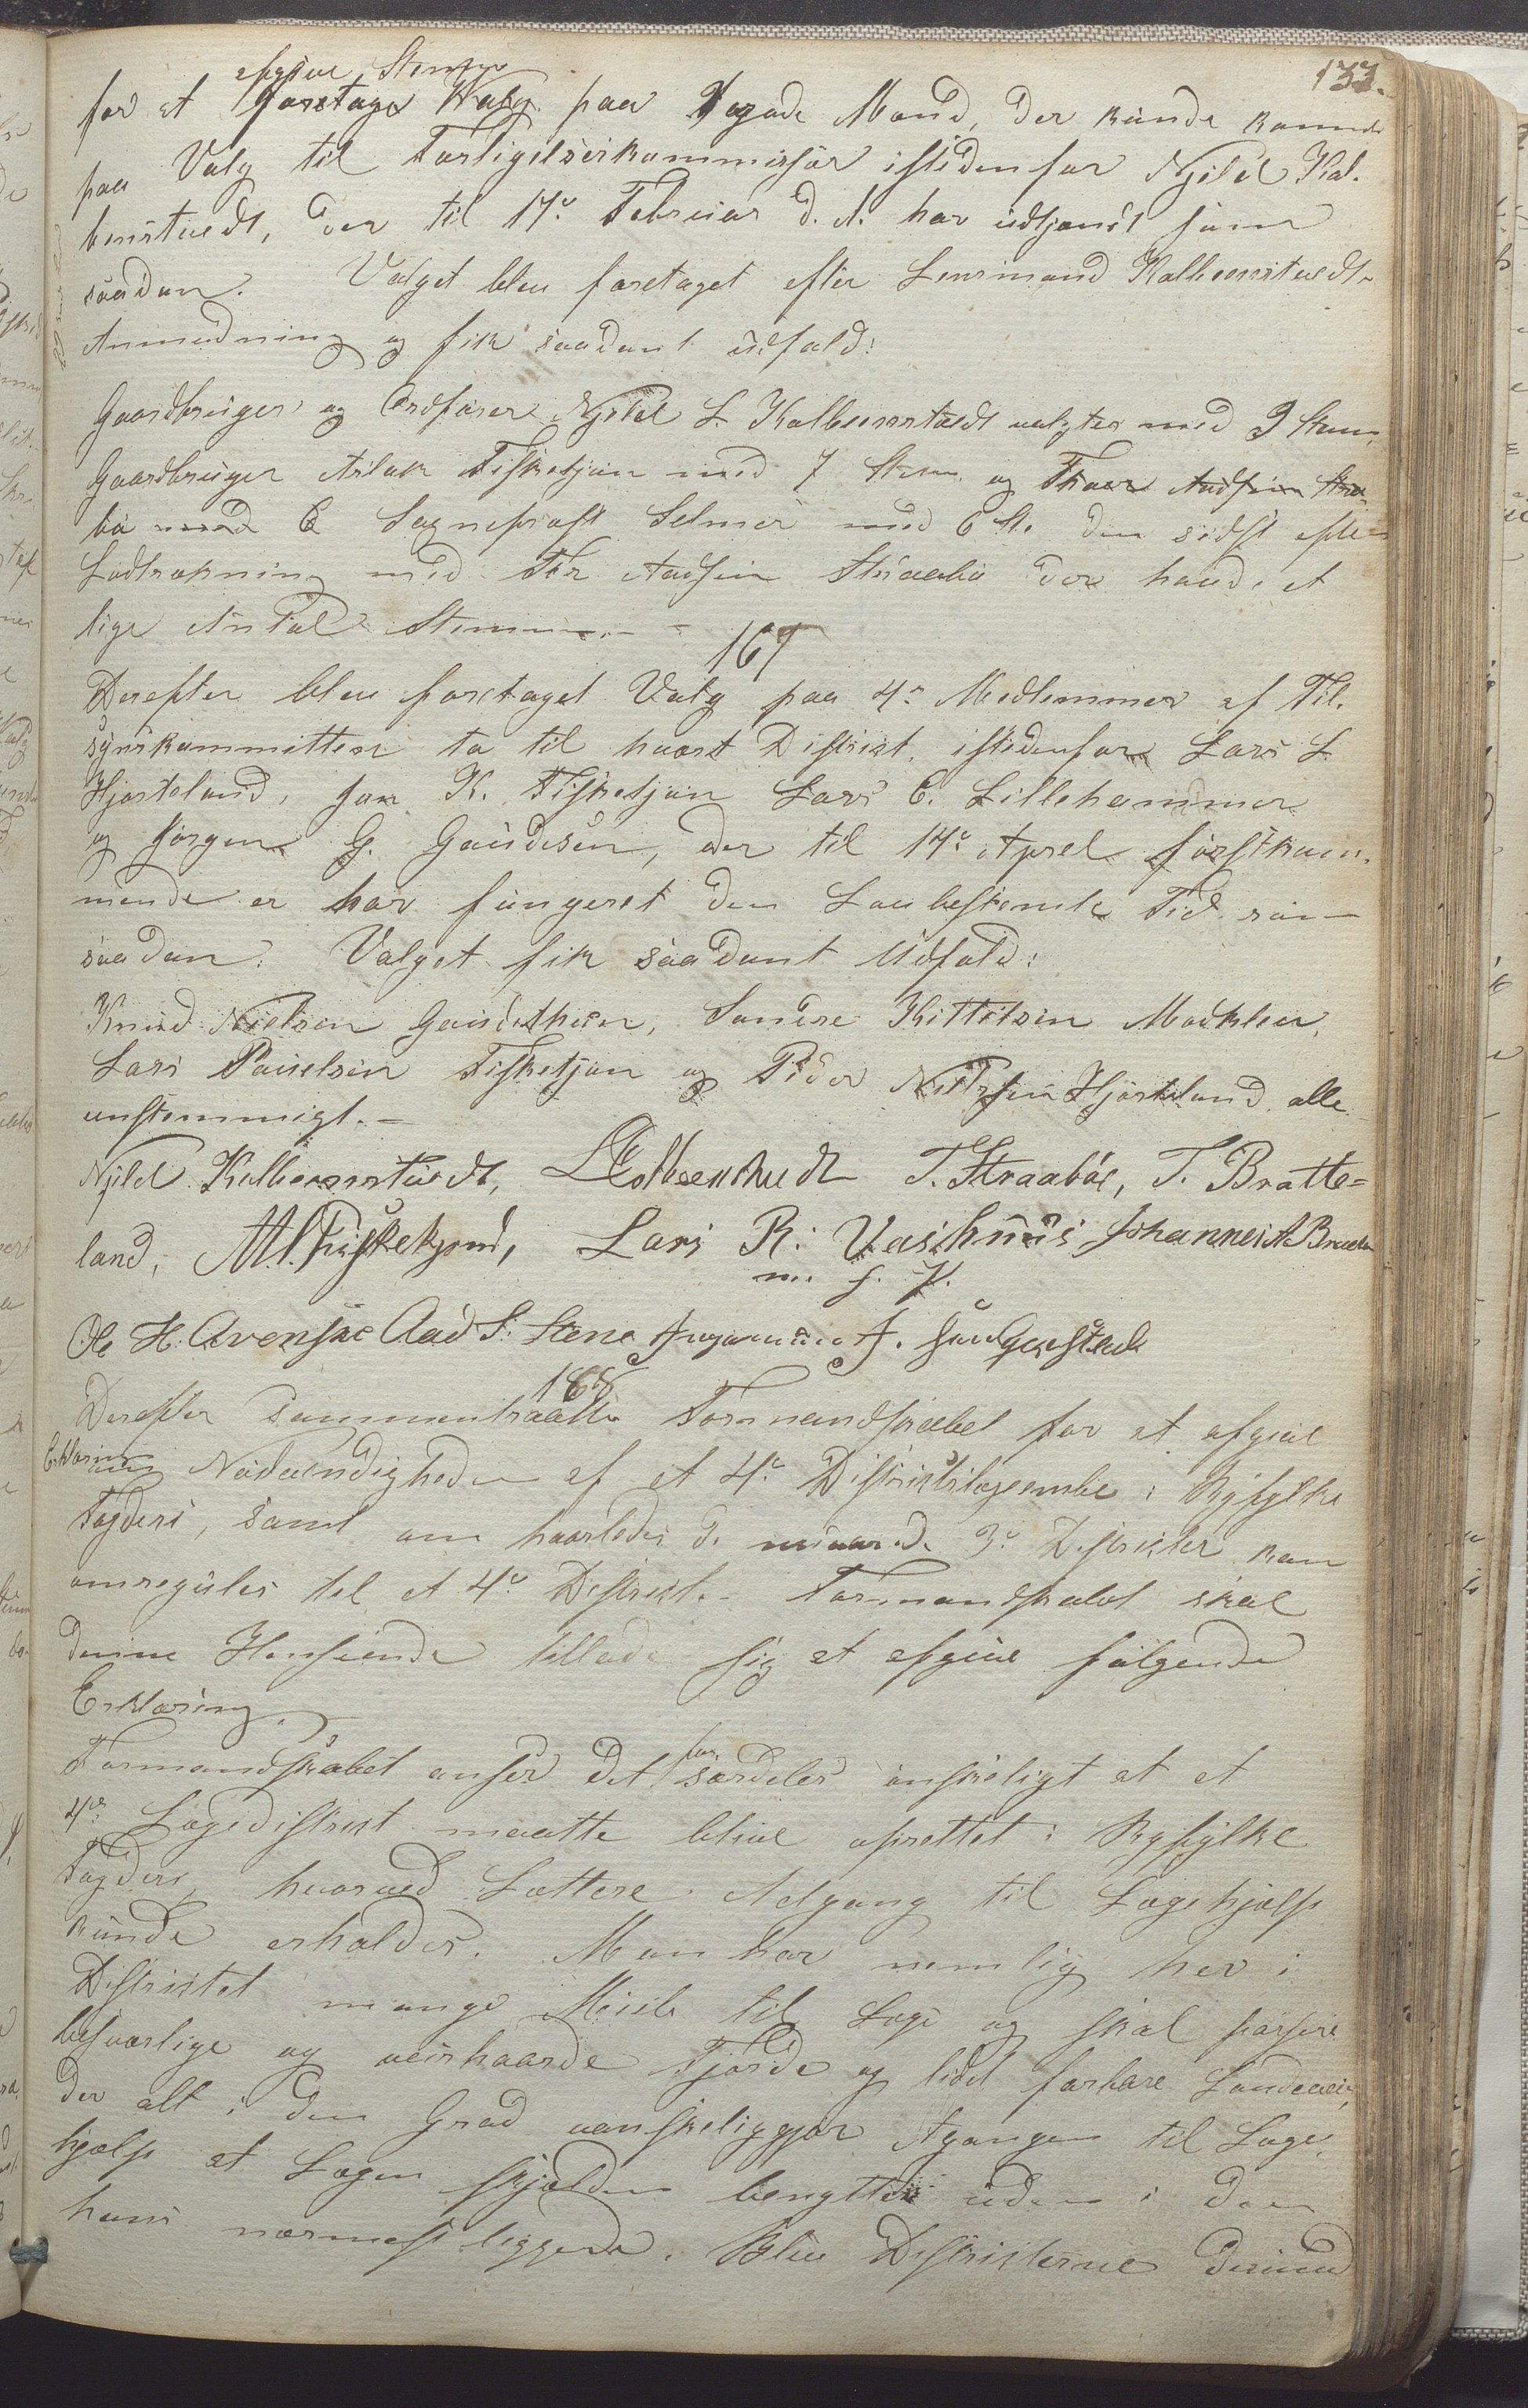 133.
afgive Stemme
for at foretage Valg paa 3 gode Mænd, der kunde komme
paa Valg til Forligelseskommissær istedenfor Njeld Kol-
benstvedt, der til 17de Februar d. A. har udtjent som
saadan. Valget blev foretaget efter Lensmand Kolbenstvedts
Anmodning og fik saadant udfald:
Gaardbruger og Ordfører Njeld L. Kolbenstvedt valgtes med 9 Stem.
Gaardbruger Aslak Fisketjøn med 7 Stem. og Thore Aadsen Straa-
bø med 6 Sogneprest Selmer med 6 St. den sidste efter
Lodtrækning med Tor Aadsen Straabø der havde et
lige Antal Stemmer.
167
Derefter blev foretaget Valg paa 4re Medlemmer af Til-
synskommitteer to til hvert Distrikt, istedenfor Lars L.
Hjorteland, Jon K. Fisketjøn Lars C. Lillehammer
og Jørgen G. Gaudesøn, der til 14de April førstkom-
mende er har fungeret den Lovbestemte Tid som
saadan. Valget fik saadant Udfald:
Knud Nielsen Gaudethun, Søndre Kittelsen Moekleiv,
Lars Paulsen Fisketjøn og Peder Nielsen Hjorteland, alle
enstemmigt.
Njeld Kolbenstvedt, L Kolbenstvedt T. Straabøe, T. Bratte-
land, A. A. Fiskekjønd, Lars R. Vashuus Johannes A Braatte
m. f. P.
Ole H. Arensje Aad S. Stene Ingemund J. Haugerstad
168
Derefter sammentraadte Formandskabet for at afgive
Erklæring om Nødvendigheden af et 4de Distriktslægeembe i Ryfylke
Fogderi, samt om hvorledes de nuværende 3de Distrikter kan
omreguleres til et 4de Distrikt. Formandskabet skal
denne Henseende tillade sig at afgive følgende
Erklæring.
Formandskabet anser det for særdeles ønskeligt at et
4de Lægedistrikt maatte blive oprettet i Ryfylke
Fogderi, hvorved Lettere Adgang til Lægehjælp
kunde erholdes. Man har nemlig her i
Distriktet mange Mile til Læge og skal passere
besværlige og veirhaarde Fjorde og lidet farbare Landeveie,
der alt i den Grad vanskeliggjør Agangen til Læge-
hjælp at Lægen sjelden benyttes uden i den
ham nærmest liggende. Blev Distrikterne derimod